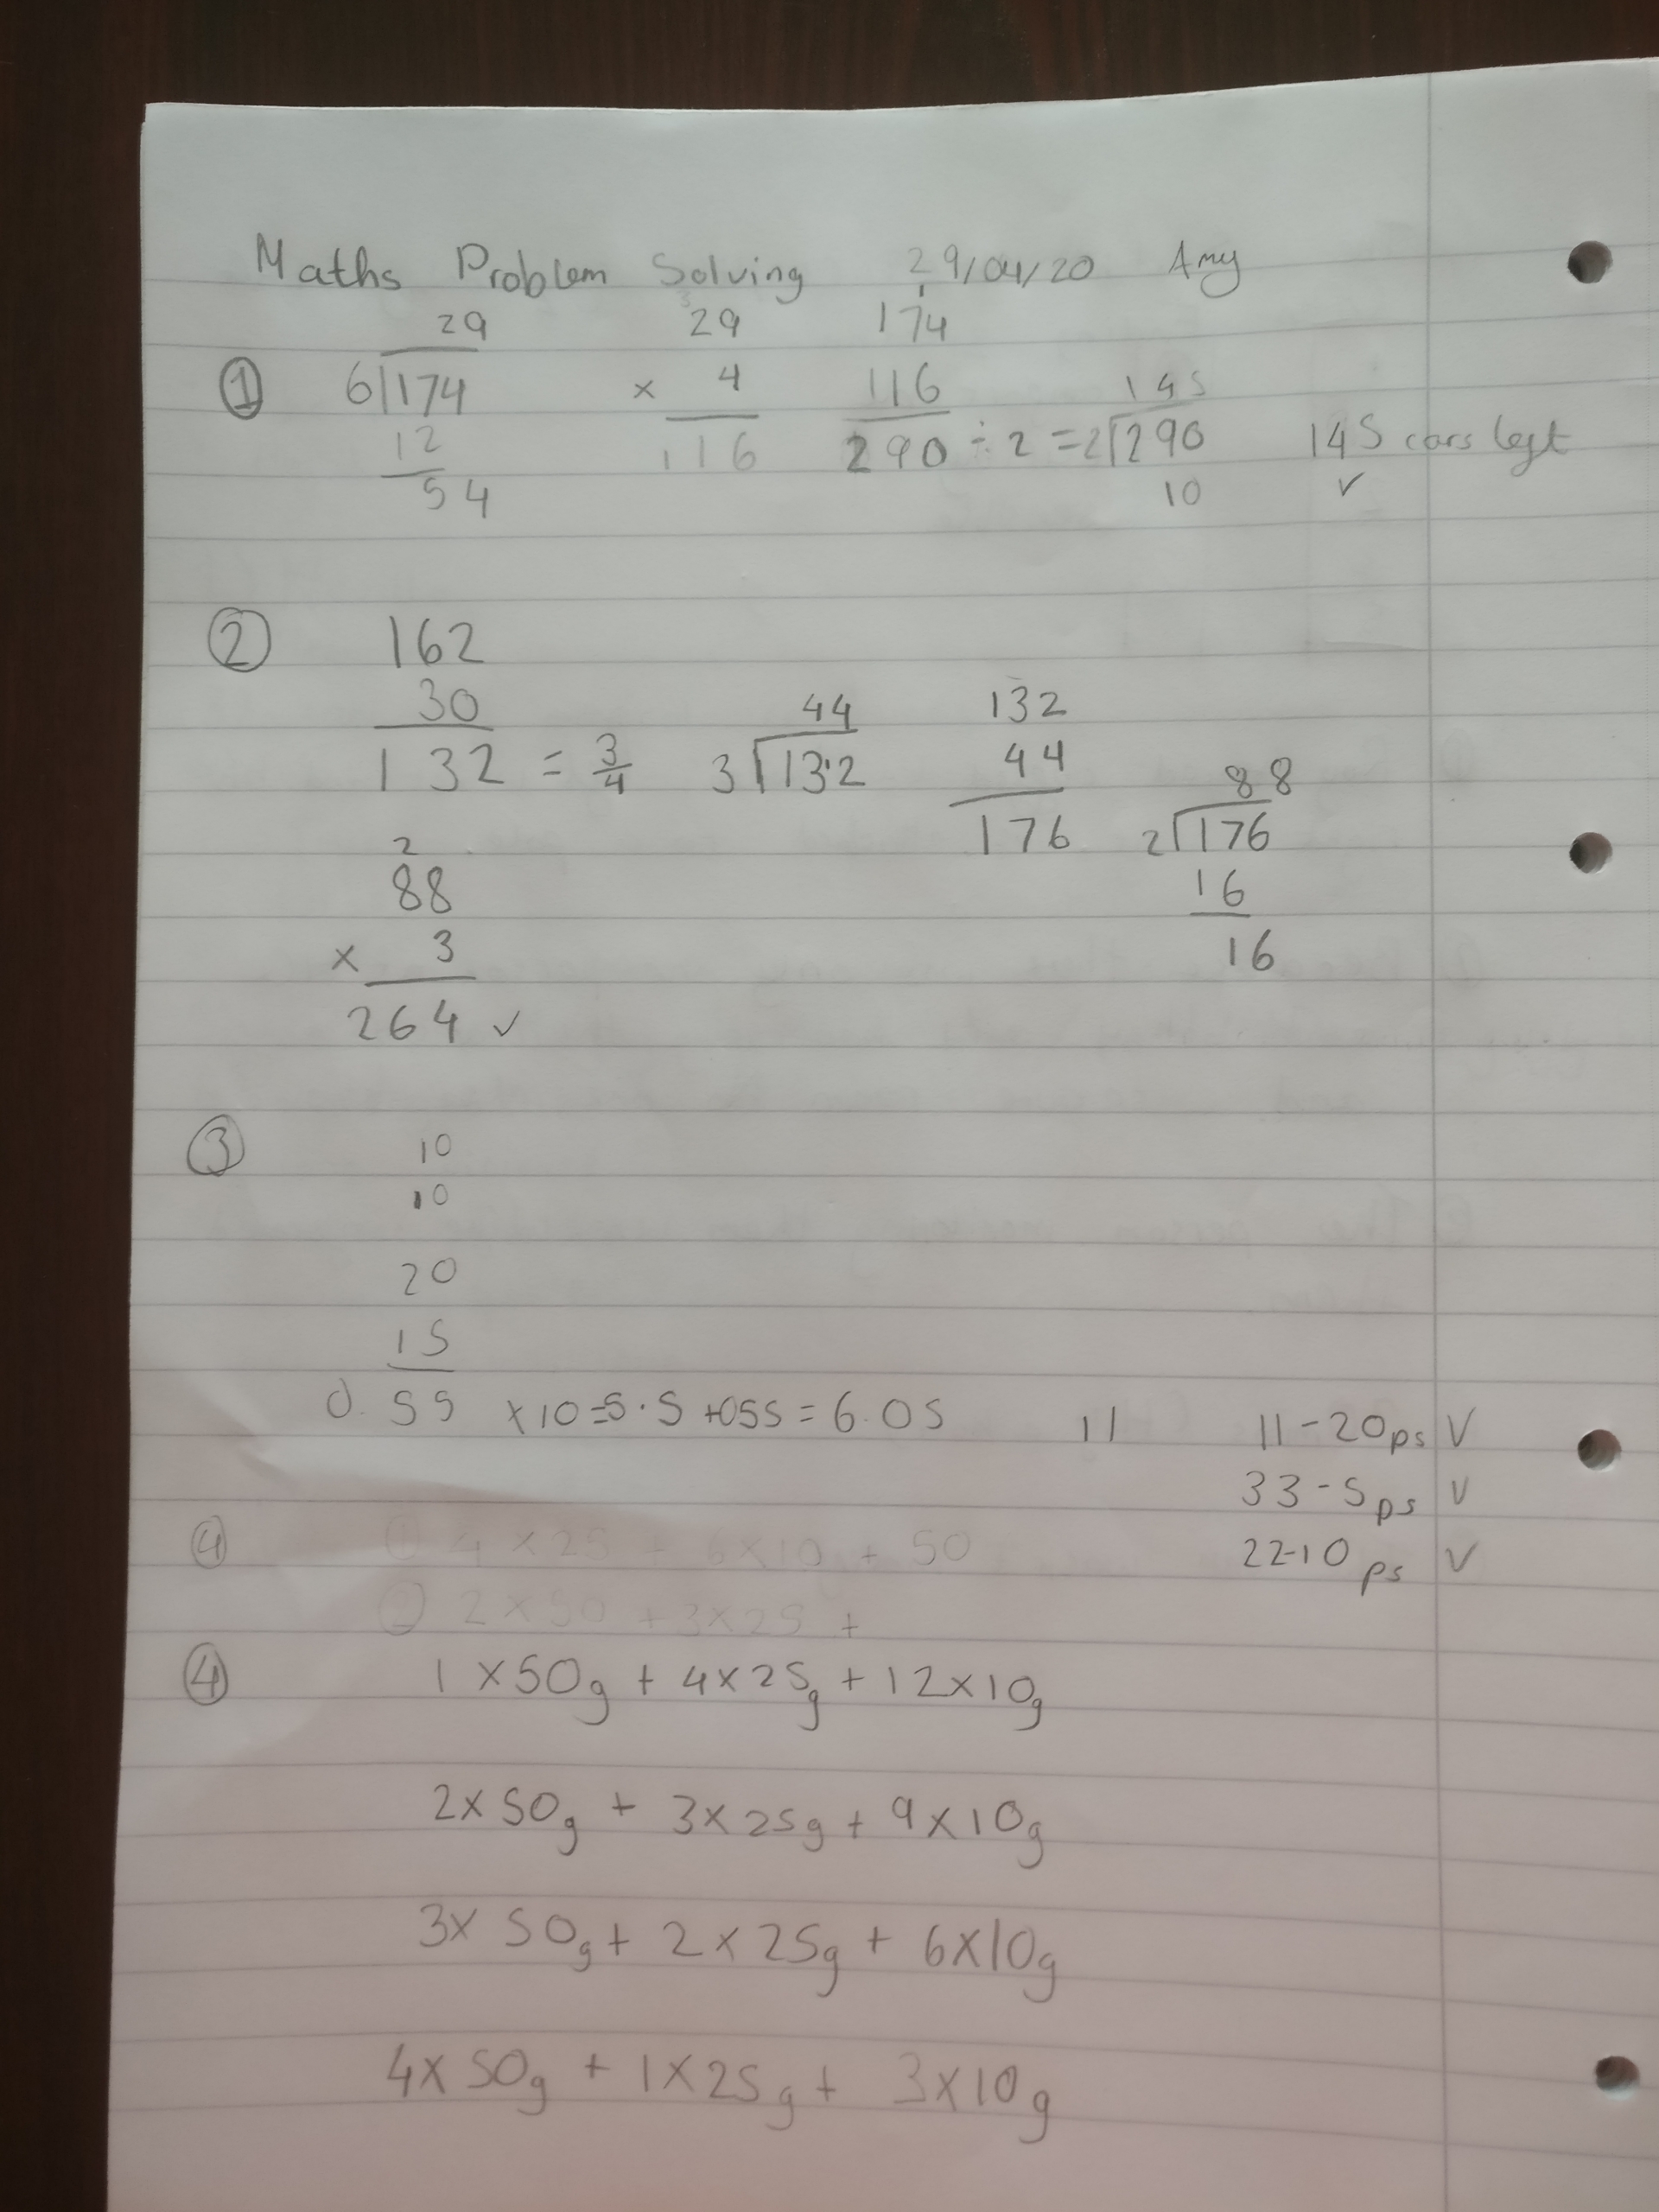 Maths Problem Solving 29/04/20 Amy
29 3 29 1 174
① 6|174 × 4 116 145
12 116 290 ÷ 2 = 2|290 145 cars left
54 10 ✓
② 162
30 44 132
132 = 3/4 3|13¹2 44 88
2 176 2|176
88 16
× 3 16
264 ✓
③ 10
10
20
15
0.55 ×10=5.5 +055 = 6.05 11 11-20ps ✓
33-5ps ✓
④ ① 4×25 + 6×10g + 50 22-10ps ✓
② 2×50 + 3×25 +
④ 1×50g + 4×25g + 12×10g
2×50g + 3×25g + 9×10g
3×50g + 2×25g + 6×10g
4×50g + 1×25g + 3×10g